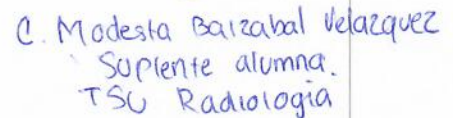 C. Modesta Baizabal Velazquez
Suplente alumna.
TSU Radiologia